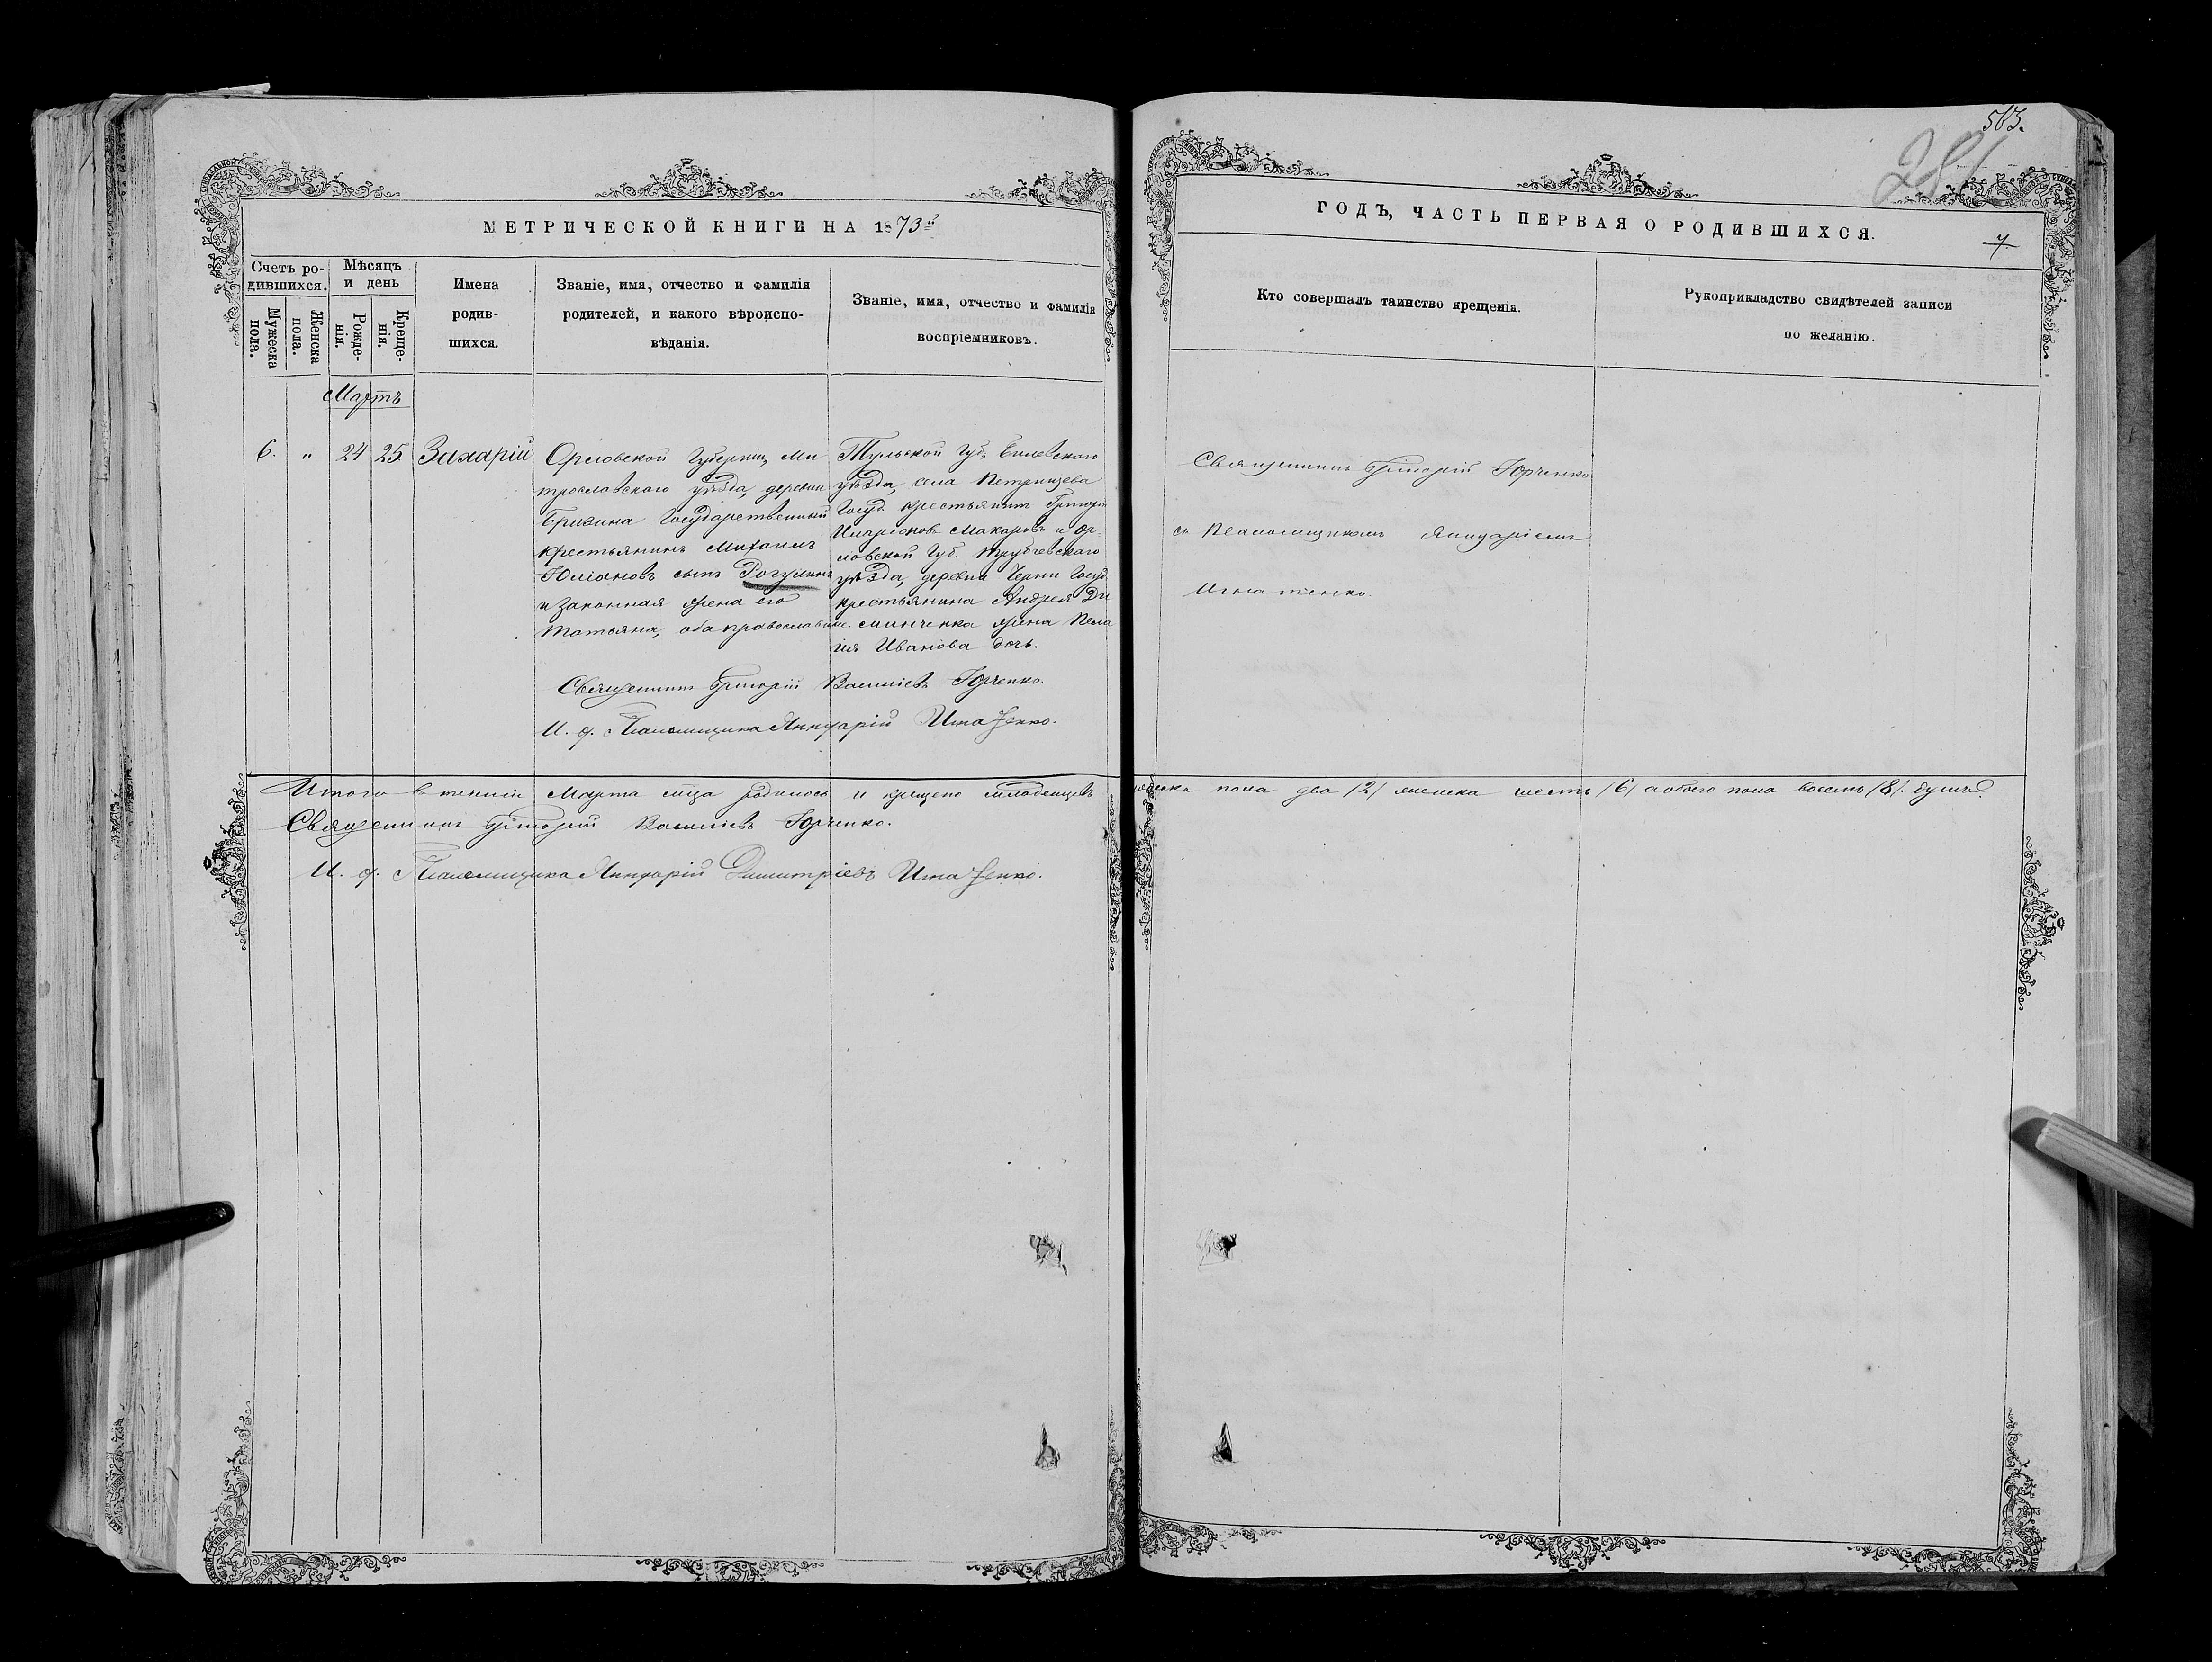 563.
281
МЕТРИЧЕСКОЙ КНИГИ НА 1873й
ГОДЪ, ЧАСТЬ ПЕРВАЯ О РОДИВШИХСЯ.
7.
Счетъ ро-
дившихся.
Мужеска
пола.
Женска
пола.
Мѣсяцъ
и день
Рожде-
нія.
Креще-
нія.
Имена
родив-
шихся.
Званіе, имя, отчество и фамилія
родителей, и какого вѣроиспо-
вѣданія.
Званіе, имя, отчество и фамилія
воспріемниковъ.
Кто совершалъ таинство крещенія.
Рукоприкладство свидѣтелей записи
по желанію.
Мартъ
6. " 24 25 Захарій
Орловской Губерніи, Ми
трославского уѣзда, деревни
Государственный
крестьянинъ Михаилъ
Юліановъ сынъ Рогулинъ
и законная жена его
Татьяна, оба православные.
Тульской Губ. Бѣлевского
уѣзда, села Петрищева
Госуд. крестьянинъ Григорій
Иларіоновъ Макаровъ и Ор-
ловской Губ. Трубчевского
уѣзда, деревни Черни Госуд.
крестьянина Андрея Ди
сминченка жена Пела
гія Иванова дочь.
Священникъ Григорій Юрченко
съ Псаломщикомъ Яннуаріемъ
Игнатенко.
Священникъ Григорій Васильевъ Юрченко.
И. д. Псаломщика Яннуарій Игнатенко.
Итого въ теченіи Марта м-ца родилось и крещено младенцевъ мужеска пола два /2/ женска шесть /6/ а обоего пола восемь /8/ душъ.
Священникъ Григорій Васильевъ Юрченко.
И. д. Псаломщика Яннуарій Димитріевъ Игнатенко.